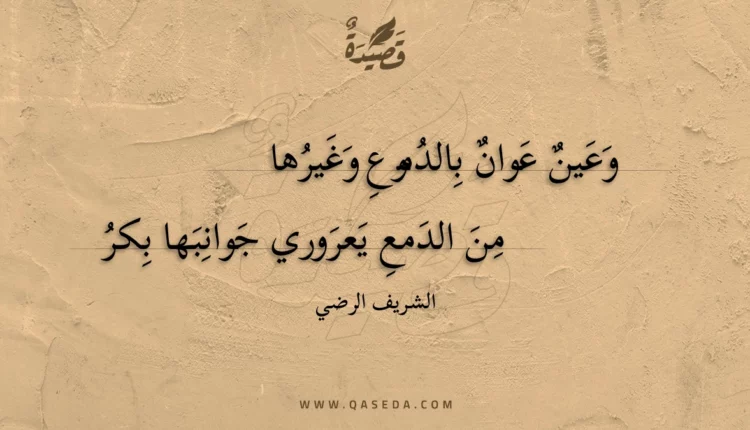 قَصِيدَةٌ
وَعَينٌ عَوانٌ بِالدُموعِ وَغَيرُها
مِنَ الدَمعِ يَعرَوري جَوانِبَها بِكرُ
الشريف الرضي
WWW.QASEDA.COM